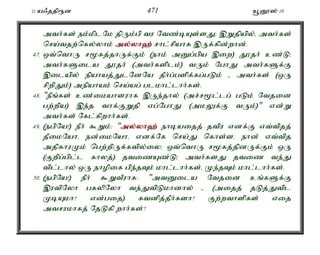 11 யஃததிரூன 471 யூனுஸ் 10
அவர்கள் நம்மிடமே திரும்பி வர வேண்டியுள்ளது; இறுதியில், அவர்கள்
செய்வதற்கெல்லாம் அல்லாஹ் சாட்சியாக இருக்கின்றான்.
47. ஒவ்வொரு சமூகத்தாருக்கும் (நாம் அனுப்பிய இறை) தூதர் உண்டு;
அவர்களுடைய தூதர் (அவர்களிடம்) வரும் போது அவர்களுக்கு
இடையில் நியாயத்துடனேயே தீர்ப்பளிக்கப்படும் - அவர்கள் (ஒரு
சிறிதும்) அநியாயம் செய்யப் படமாட்டார்கள்.
48. "நீங்கள் உண்மையாளராக இருந்தால் (அச்சமூட்டப் படும் வேதனை
பற்றிய) இந்த வாக்குறுதி எப்போது (அமலுக்கு வரும்)" என்று
அவர்கள் கேட்கிறார்கள்.
49. (நபியே) நீர் கூறும்: "அல்லாஹ் நாடியதைத் தவிர எனக்கு எவ்விதத்
தீமையோ, நன்மையோ, எனக்கே செய்து கொள்ள, நான் எவ்வித
அதிகாரமும் பெற்றிருக்கவில்லை; ஒவ்வொரு சமூகத்தினருக்கும் ஒரு
(குறிப்பிட்ட காலத்) தவணையுண்டு; அவர்களது தவணை வந்து
விட்டால் ஒரு நாழிகை பிந்தவும் மாட்டார்கள், முந்தவும் மாட்டார்கள்.
50. (நபியே) நீர் கூறுவீராக: "அவனுடைய வேதனை உங்களுக்கு
இரவிலோ பகலிலோ வந்துவிடுமானால் - (அதைத் தடுத்துவிட
முடியுமா? என்பதை) கவனித்தீர்களா? குற்றவாளிகள் எதை
அவசரமாகத் தேடுகி றார்கள்?